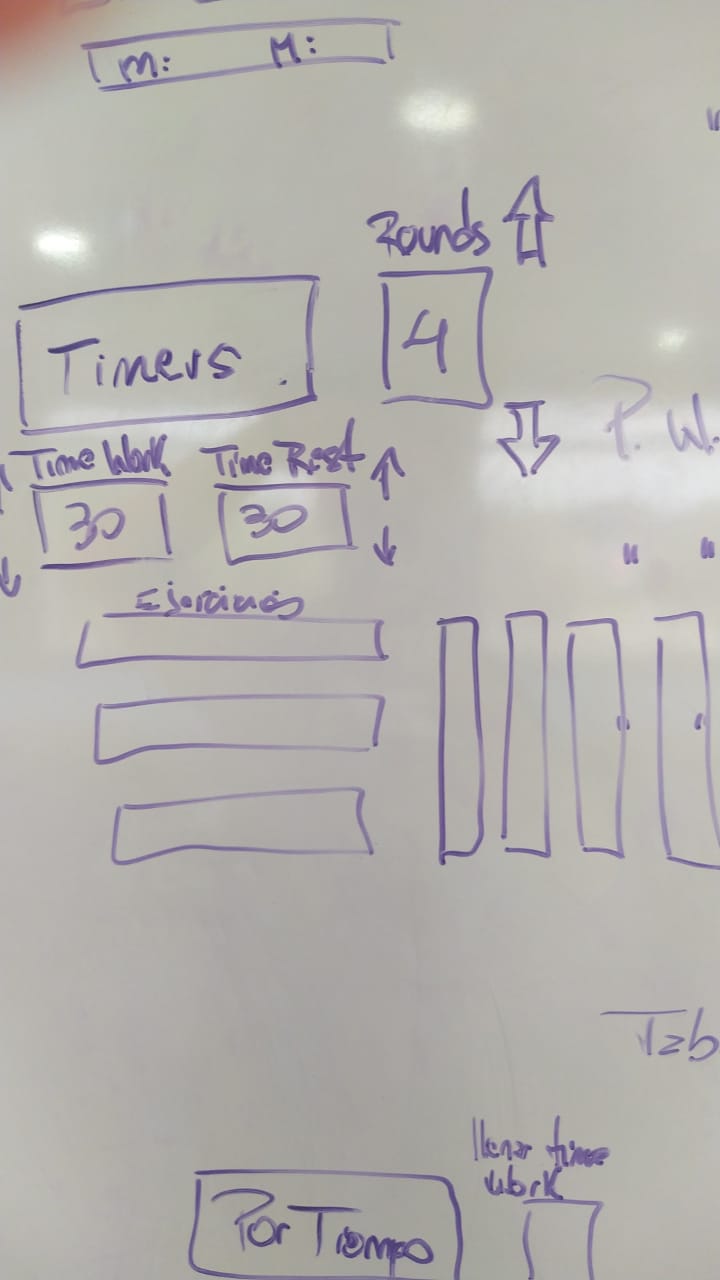 m: M:
Rounds
4
Timers
Time Work Time Rest
30 30
P. W.
" "
Ejercicios
Tab
llenar time
work
Por Tiempo